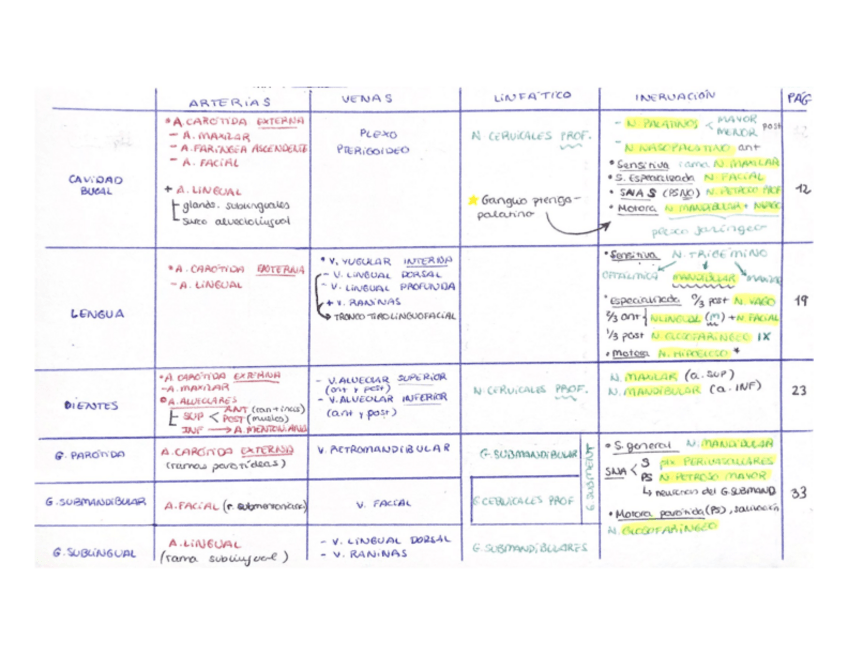 ARTERÍAS VENAS LINFÁTICO INERVACIÓN PÁG
CAVIDAD BUCAL
* A. CARÓTIDA EXTERNA
- A. MAXILAR
- A. FARÍNGEA ASCENDENTE
- A. FACIAL
+ A. LINGUAL
glands. sublinguales
surco alveolilingual
PLEXO
PTERIGOIDEO
N. CERVICALES PROF.
Ganglio pterigo-
palatino
- N. PALATINOS < MAYOR MENOR post
- N. NASOPALATINO ant
• Sensitiva rama N. MAXILAR
• S. Especializada N. FACIAL
• SNA S (PSNO) N. PETROSO PROF
• Motora N. MANDIBULAR + N. VAGO
plexo faríngeo
12
LENGUA
* A. CARÓTIDA EXTERNA
- A. LINGUAL
* V. YUGULAR INTERNA
- V. LINGUAL DORSAL
- V. LINGUAL PROFUNDA
+ V. RANINAS
TRONCO TIROLINGUOFACIAL
• Sensitiva N. TRIGÉMINO
MANDIBULAR
• especializada post N. VAGO
2/3 ant N. LINGUAL (m) + N. FACIAL
1/3 post N. GLOSOFARÍNGEO IX
• Motora N. HIPOGLOSO *
19
DIENTES
* A. CARÓTIDA EXTERNA
- A. MAXILAR
A. ALVEOLARES
SUP < ANT (can + incs)
POST (muelas)
INF → A. MENTONIANA
- V. ALVEOLAR SUPERIOR
(ant y post)
- V. ALVEOLAR INFERIOR
(ant y post)
N. CERVICALES PROF.
N. MAXILAR (a. SUP)
N. MANDIBULAR (a. INF)
23
G. PARÓTIDA
A. CARÓTIDA EXTERNA
(ramas parotídeas)
V. RETROMANDIBULAR
G. SUBMANDIBULAR
G. SUBMENT
G. SUBMANDIBULAR
A. FACIAL (r. submentoniana)
V. FACIAL
G. CERVICALES PROF
G. SUBLINGUAL
A. LINGUAL
(rama sublingual)
- V. LINGUAL DORSAL
- V. RANINAS
G. SUBMANDIBULARES
• S. general N. MANDIBULAR
SNA < S plx PERIVASCULARES
PS N. PETROSO MAYOR
↳ neurona del G. SUBMAND
• Motora parótida (PS), salivación
N. GLOSOFARÍNGEO
33